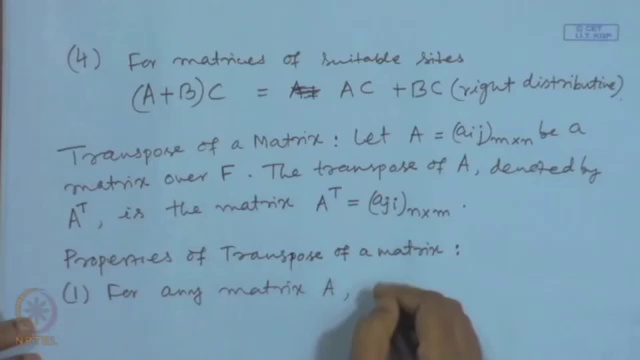 © CET
I.I.T. KGP
(4) For matrices of suitable sites
(A+B)C = AC + BC (right distributive)
Transpose of a Matrix : Let A = (aij)m×n be a
matrix over F. The transpose of A, denoted by
Aᵀ, is the matrix Aᵀ = (aji)n×m.
Properties of Transpose of a matrix :
(1) For any matrix A,
NPTEL